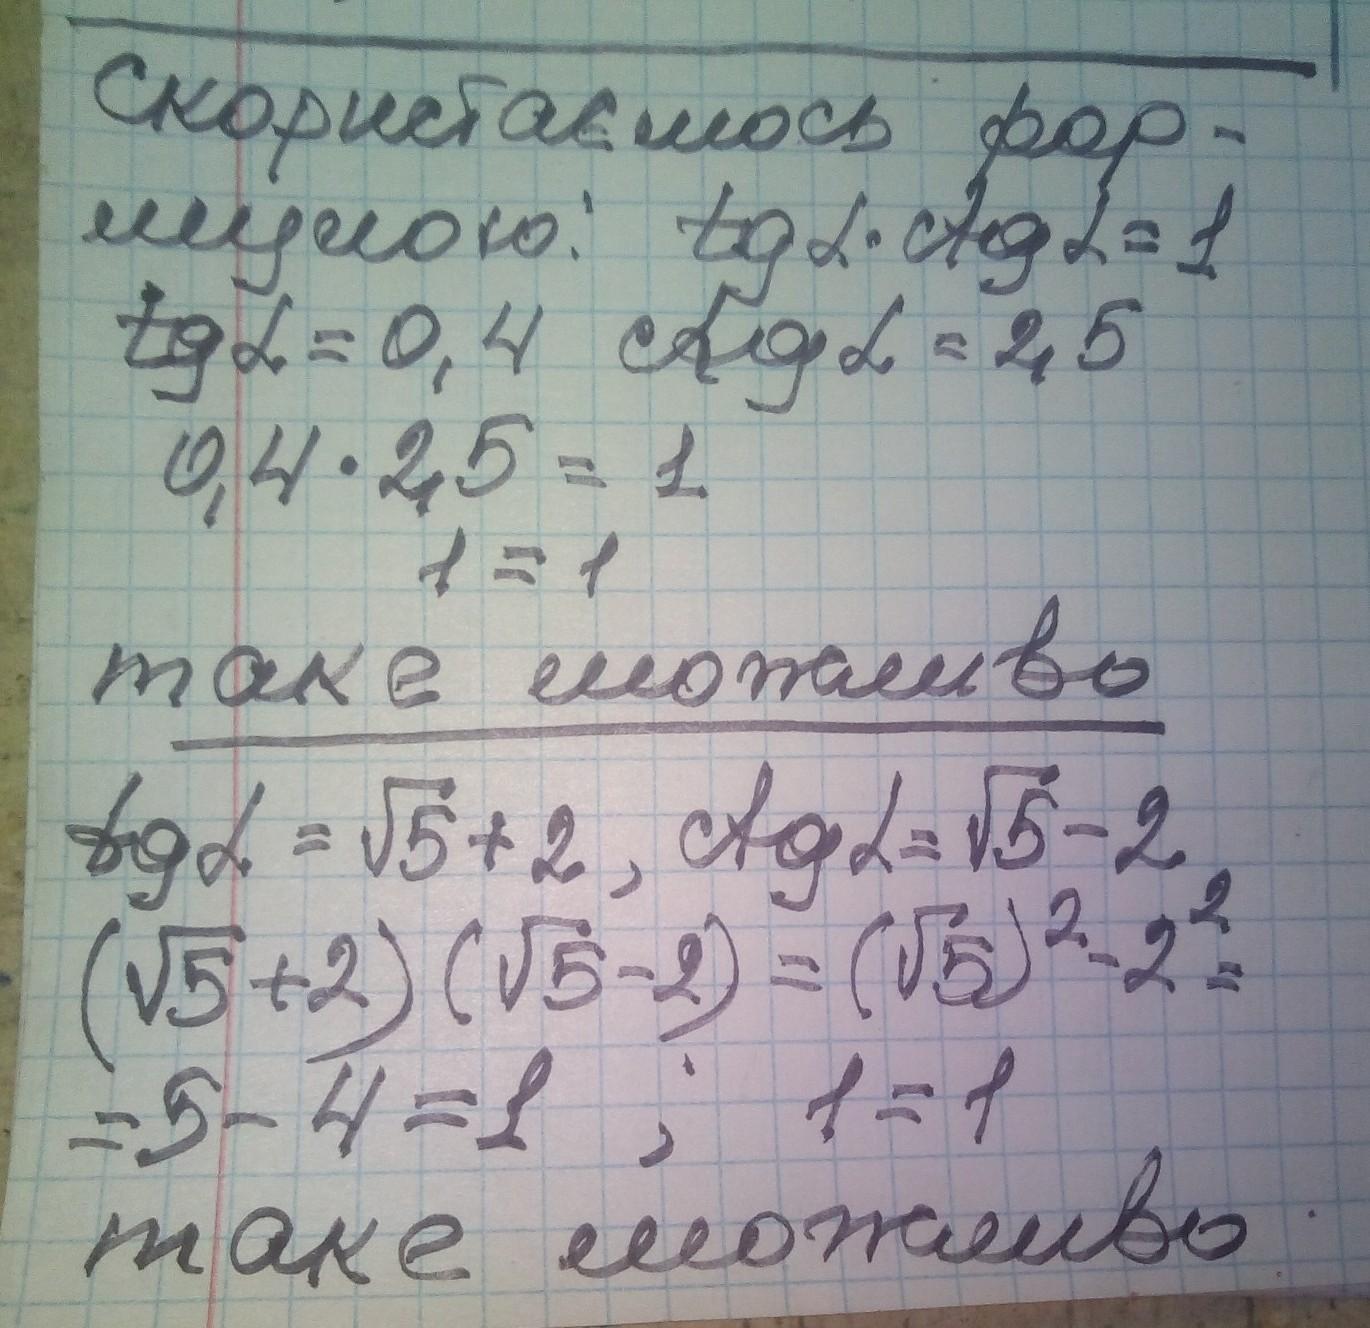 Скористаємось фор-
мулою: tg α · ctg α = 1
tg α = 0,4 ctg α = 2,5
0,4 · 2,5 = 1
1 = 1
таке можливо
tg α = √5 + 2, ctg α = √5 - 2
(√5 + 2) (√5 - 2) = (√5)² - 2² =
= 5 - 4 = 1 ; 1 = 1
таке можливо